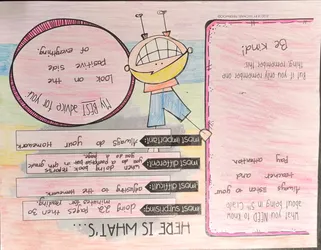 What you NEED to know
about being in 5th Grade
Always listen to your
teacher and
pay attention
But if you only remember one
thing, remember this:
Be kind!
HERE IS WHAT'S...
most surprising: doing 22 pages then 30
minutes for reading
most difficult: adjusting to the homework
most different: when doing book reports
most important: Always do your homework
My BEST advice for you:
look on the
positive side
of everything.